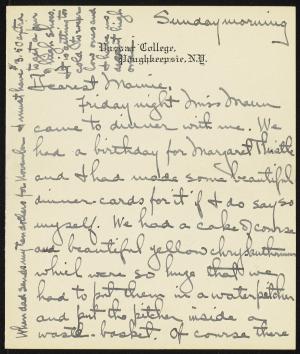 Sunday morning
Vassar College,
Poughkeepsie, N.Y.
Dearest Mamie,
Friday night Miss Mann
came to dinner with me. We
had a birthday for Margaret
and I had made some beautiful
dinner-cards for it if I do say so
myself. We had a cake of course
and beautiful yellow chrysanthemums
which were so huge that we
had to put them in a water pitcher
and put the pitcher inside a
waste-basket. Of course there
When dad sends my ten dollars for November I must have $3.50 extra
to get a pr
of high shoes,
It is getting too
cold to wear
low ones and
I have no
decent high
ones